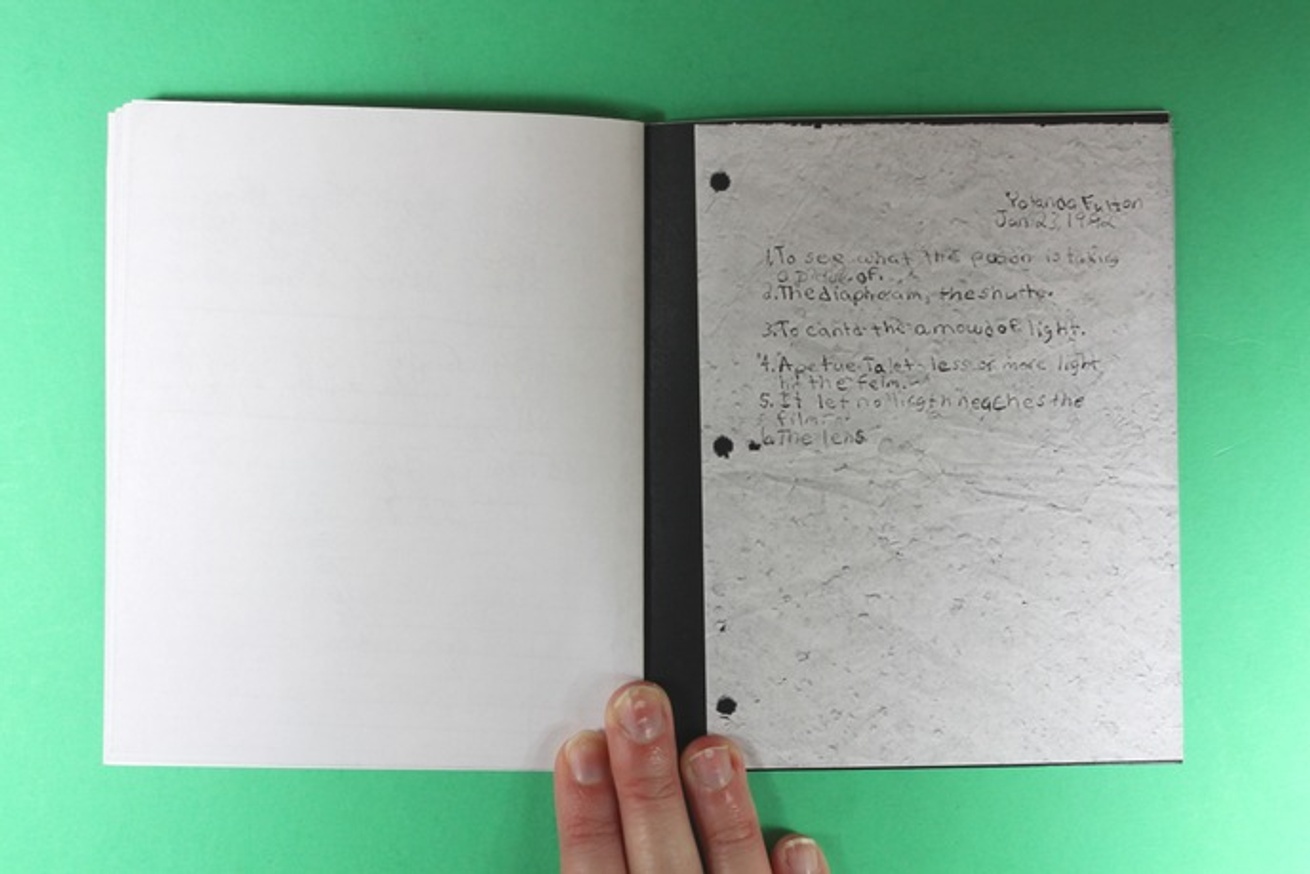 Yolanda Fulton
Jan 23, 1992
1. To see what the peoson is taking
a picue of.
2. The diaphram, the shutte.
3. To canto the amowd of light.
4. Apetue Ta let less or more light
hit the felm.
5. It let no licgth neaches the
film.
6. The lens